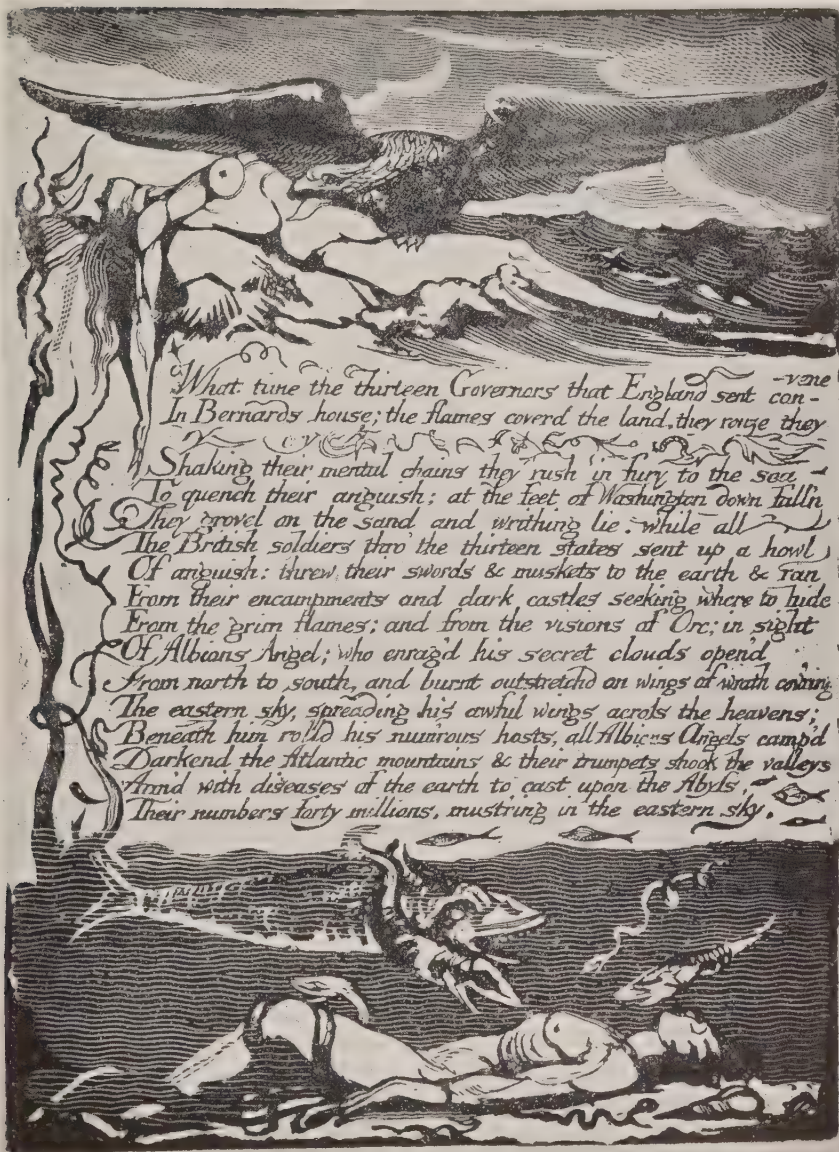 What time the thirteen Governors that England sent con-
-vene
In Bernards house; the flames coverd the land, they rouze they cry
Shaking their mental chains they rush in fury to the sea
To quench their anguish; at the feet of Washington down falln
They grovel on the sand and writhing lie. while all
The British soldiers thro' the thirteen states sent up a howl
Of anguish: threw their swords & muskets to the earth & ran
From their encampments and dark castles seeking where to hide
From the grim flames; and from the visions of Orc; in sight
Of Albions Angel; who enrag'd his secret clouds open'd
From north to south, and burnt outstretchd on wings of wrath cov'ring
The eastern sky, spreading his awful wings across the heavens;
Beneath him rolld his num'rous hosts, all Albions Angels camp'd
Darkend the Atlantic mountains & their trumpets shook the valleys
Arm'd with diseases of the earth to cast upon the Abyss,
Their numbers forty millions, must'ring in the eastern sky.